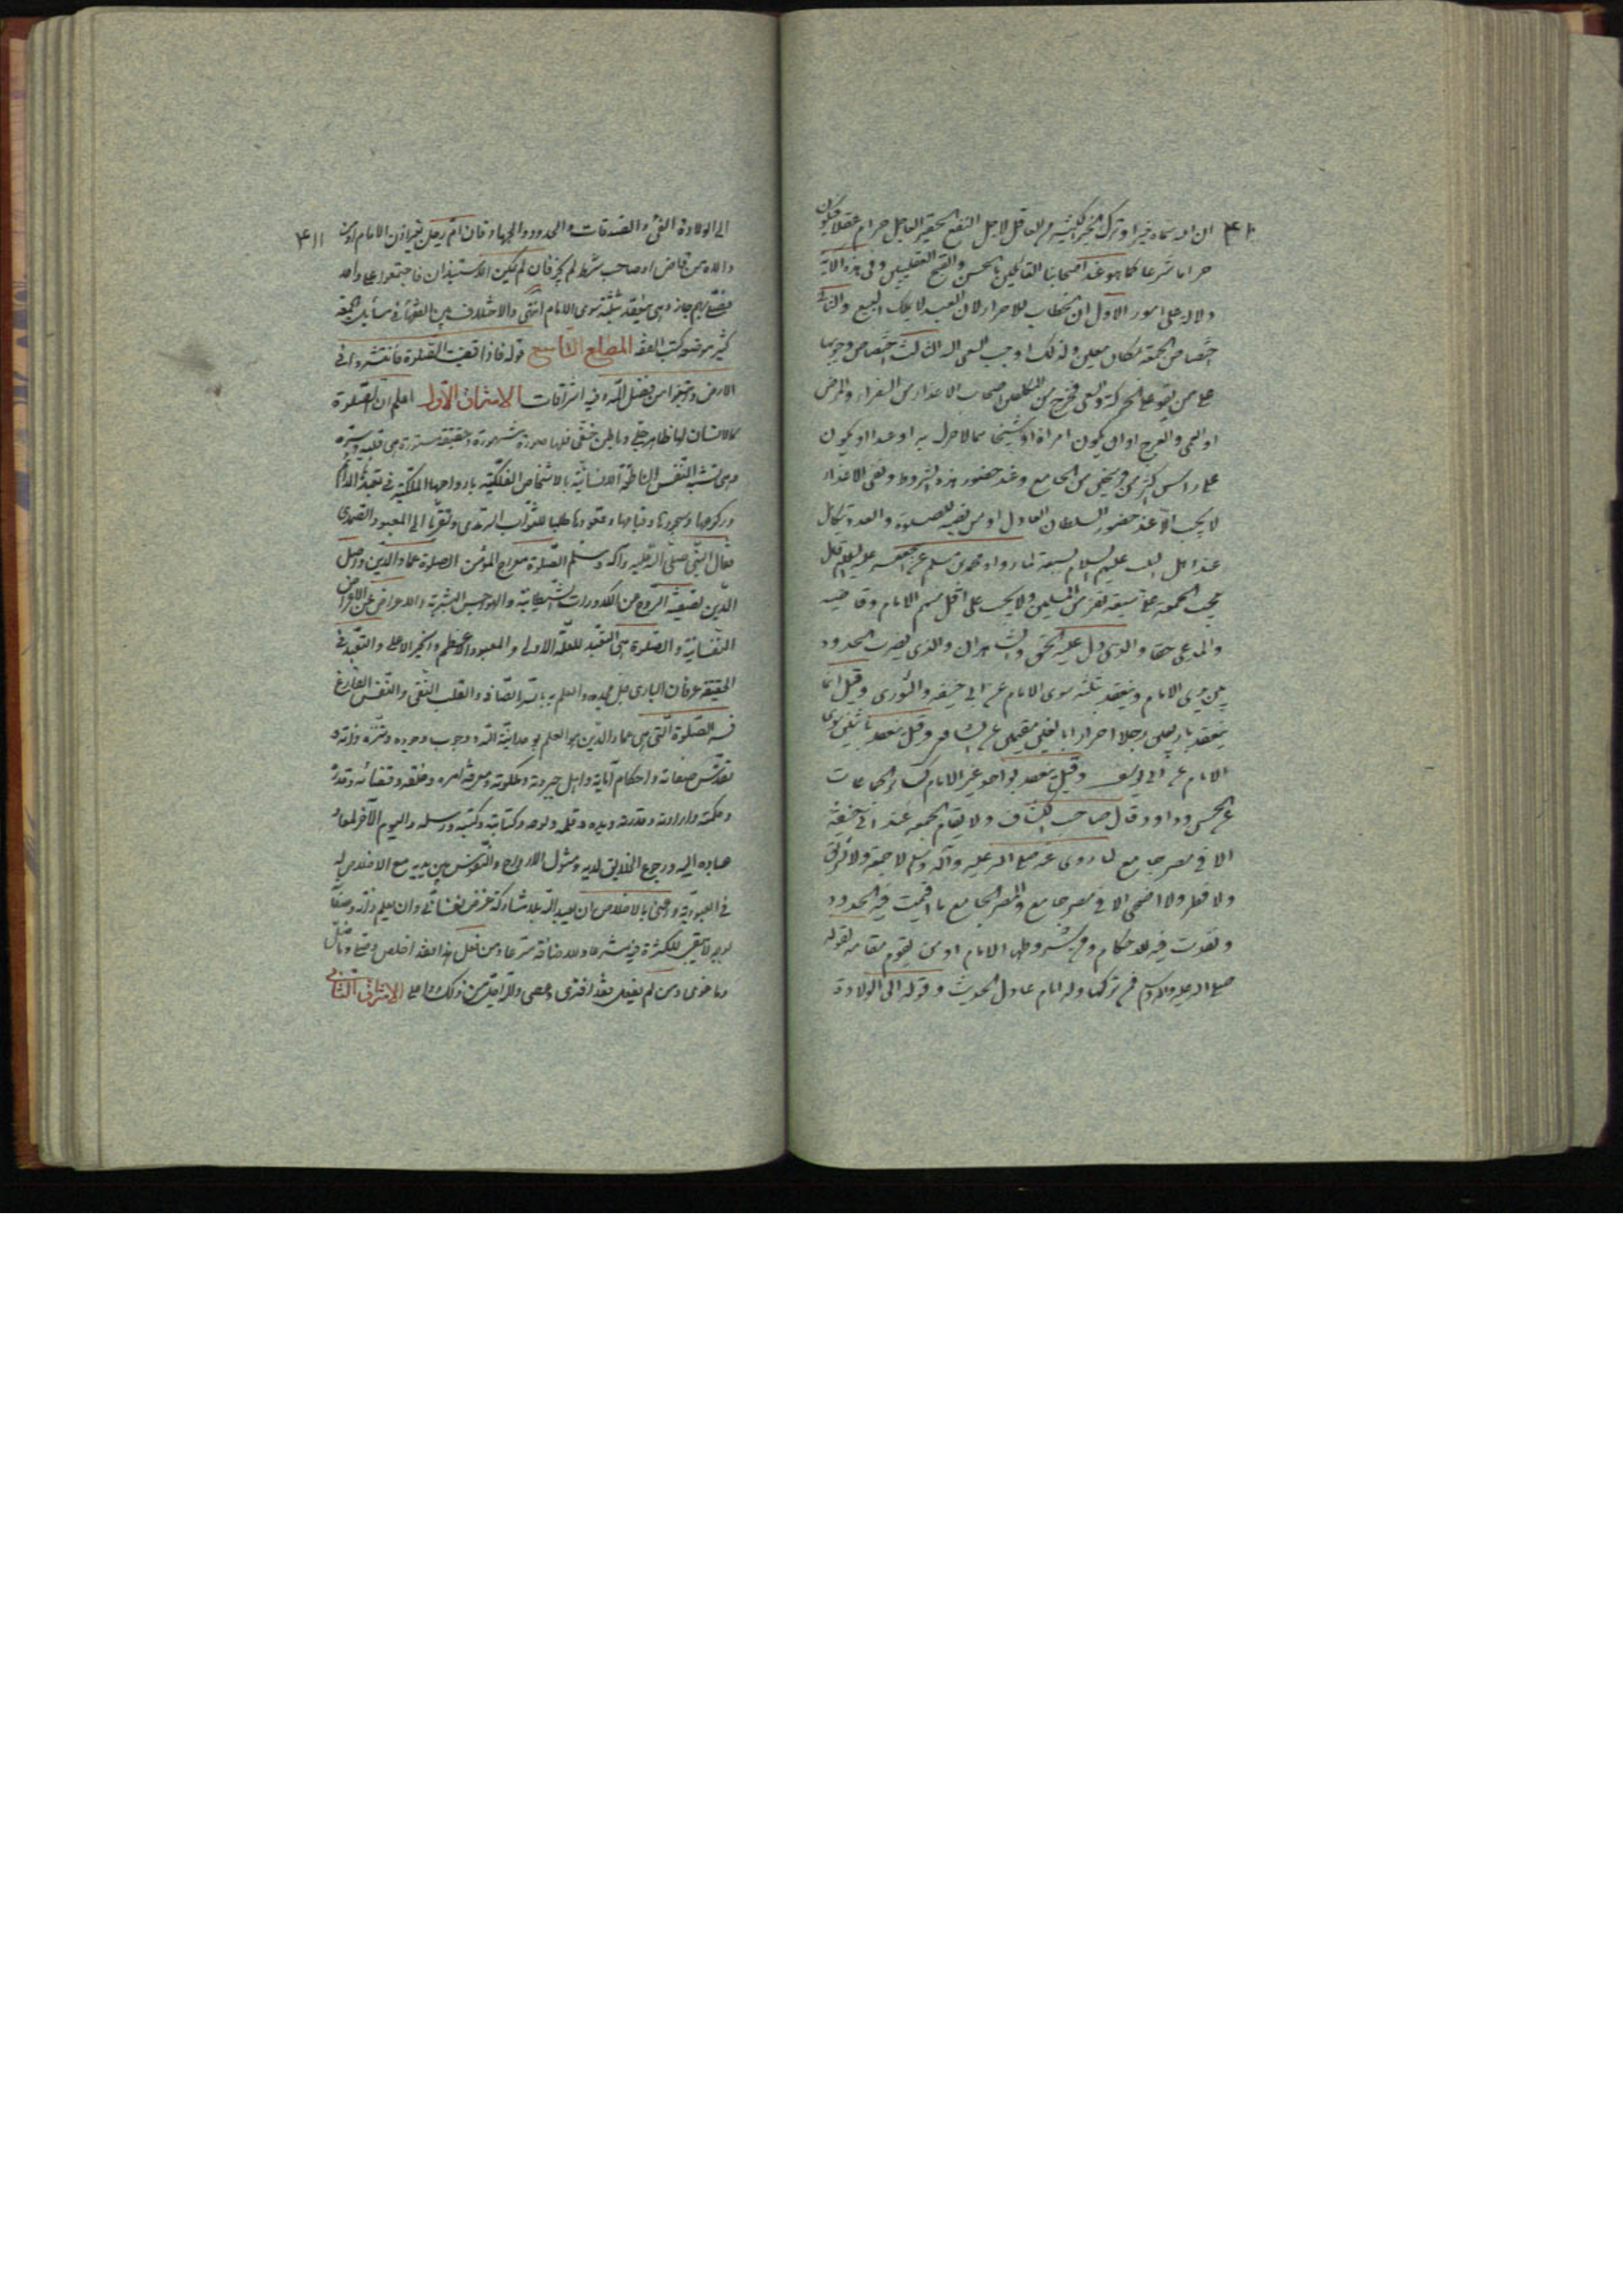 ٤١٠
ان الله سماه خيرا وترك الخير الكثير من العاقل لاجل النفع الحقير العاجل حرام عقلا فيكون
حراما شرعا كما هو عند اصحابنا القائلين بالحسن والقبح العقليين وفي هذه الآية
دلالة على امور الاول ان الخطاب للاحرار لان العبد لا يملك البيع والثاني
اختصاص الجمعة بمكان معين ولذلك اوجب السعي اليه الثالث اختصاص وجوبها
على من يقوى على الحركة والسعي فخرج من المكلفين اصحاب الاعذار من السفر او المرض
او العمى والعرج او ان يكون امراة او شيخا مما لا حراك به او عبدا او يكون
على راس اكثر من فرسخين من الجامع وعند حضور هذه الشروط ونفي الاعذار
لا يجب الا عند حضور السلطان العادل او من نصبه للصلوة والعدد يتكامل
عند اهل البيت عليهم السلام بسبعة لما رواه محمد بن مسلم عن ابي جعفر عليه السلام قال
تجب الجمعة على سبعة نفر من المسلمين ولا يجب على اقل منهم الامام وقاضيه
والمدعي حقا والذي دل عليه الحق والشاهدان والذي يضرب الحدود
بين يدي الامام وينعقد بثلثة سوى الامام عن ابي حنيفة والثوري وقيل انما
ينعقد باربعين رجلا احرارا بالغين مقيمين عن الشافعي وقيل ينعقد باثنين سوى
الامام عن ابي يوسف وقيل ينعقد بواحد غير الامام كسائر الجماعات
عن الحسن وداود وقال صاحب الكشاف ولا يقام الجمعة عند ابي حنيفة
الا في مصر جامع لما روى عنه صلى الله عليه وآله وسلم لا جمعة ولا تشريق
ولا فطر ولا اضحى الا في مصر جامع والمصر الجامع ما اقيمت فيه الحدود
ونفذت فيه الاحكام ومن شروطها الامام او من يقوم مقامه لقوله
صلى الله عليه وآله وسلم فمن تركها وله امام عادل الحديث وقوله الى الولادة
٤١١
الى الولادة الفيء والصدقات والحدود والجهاد فان ام رجل بغير اذن الامام او من
ولاه من قاض او صاحب شرط لم يجز فان لم يكن الاستيذان فاجتمعوا على واحد
فصلى بهم جاز وهي ينعقد بثلثة سوى الامام انتهى والاختلاف بين الفقهاء في مسائل الجمعة
كثير موضعه كتب الفقه المطلع التاسع قوله فاذا قضيت الصلوة فانتشروا في
الارض وابتغوا من فضل الله وفيه اشراقات الاشراق الاول اعلم ان للصلوة
كالانسان لها ظاهر جلي وباطن خفي فلها صورة مشهورة وحقيقة مستورة هي قلبه وسره
وهي تشبه النفس الناطقة الانسانية بالاشخاص الفلكية بارواحها الملكية في تعبدها الدائم
وركوعها وسجودها وقيامها وقعودها طلبا للثواب السرمدي وتقربا الى المعبود الصمدي
فقال النبي صلى الله عليه وآله وسلم الصلوة معراج المؤمن الصلوة عماد الدين واصل
الدين تصفية الروح من الكدورات الشيطانية والهواجس البشرية والاعراض عن الاغراض
النفسانية والصلوة هي التعبد للعلة الاولى والمعبود الاعظم والخير الاعلى والتعبد في
الحقيقة عرفان الباري جل مجده والعلم به بالسر الصافي والقلب النقي والنفس الفارغ
فسر الصلوة التي هي عماد الدين هو العلم بوحدانية الله ووجوب وجوده وتنزه ذاته و
تقدس صفاته واحكام آياته واهل جبروته وملكوته ومعرفة امره وخلقه وقضائه وقدره
وحكمته وارادته وقدرته ويده وقلمه ولوحه وكتابته وكتبه ورسله واليوم الآخر لمعاد
عباده اليه ورجوع الخلايق لديه ومثول الارواح والنفوس بين يديه مع الاخلاص له
في العبودية ونعني بالاخلاص ان يعبد الله بلا مشاركة غرض نفساني وان يعلم ذاته وصفاته
بوجه لا يبقى للكثرة فيه مشرعا ولا للاضافة مترعا ومن فعل هذا فقد اخلص وصلى وما ضل
وما غوى ومن لم يفعل فقد افترى وعصى والله اجل من ذلك واعلى الاشراق الثاني